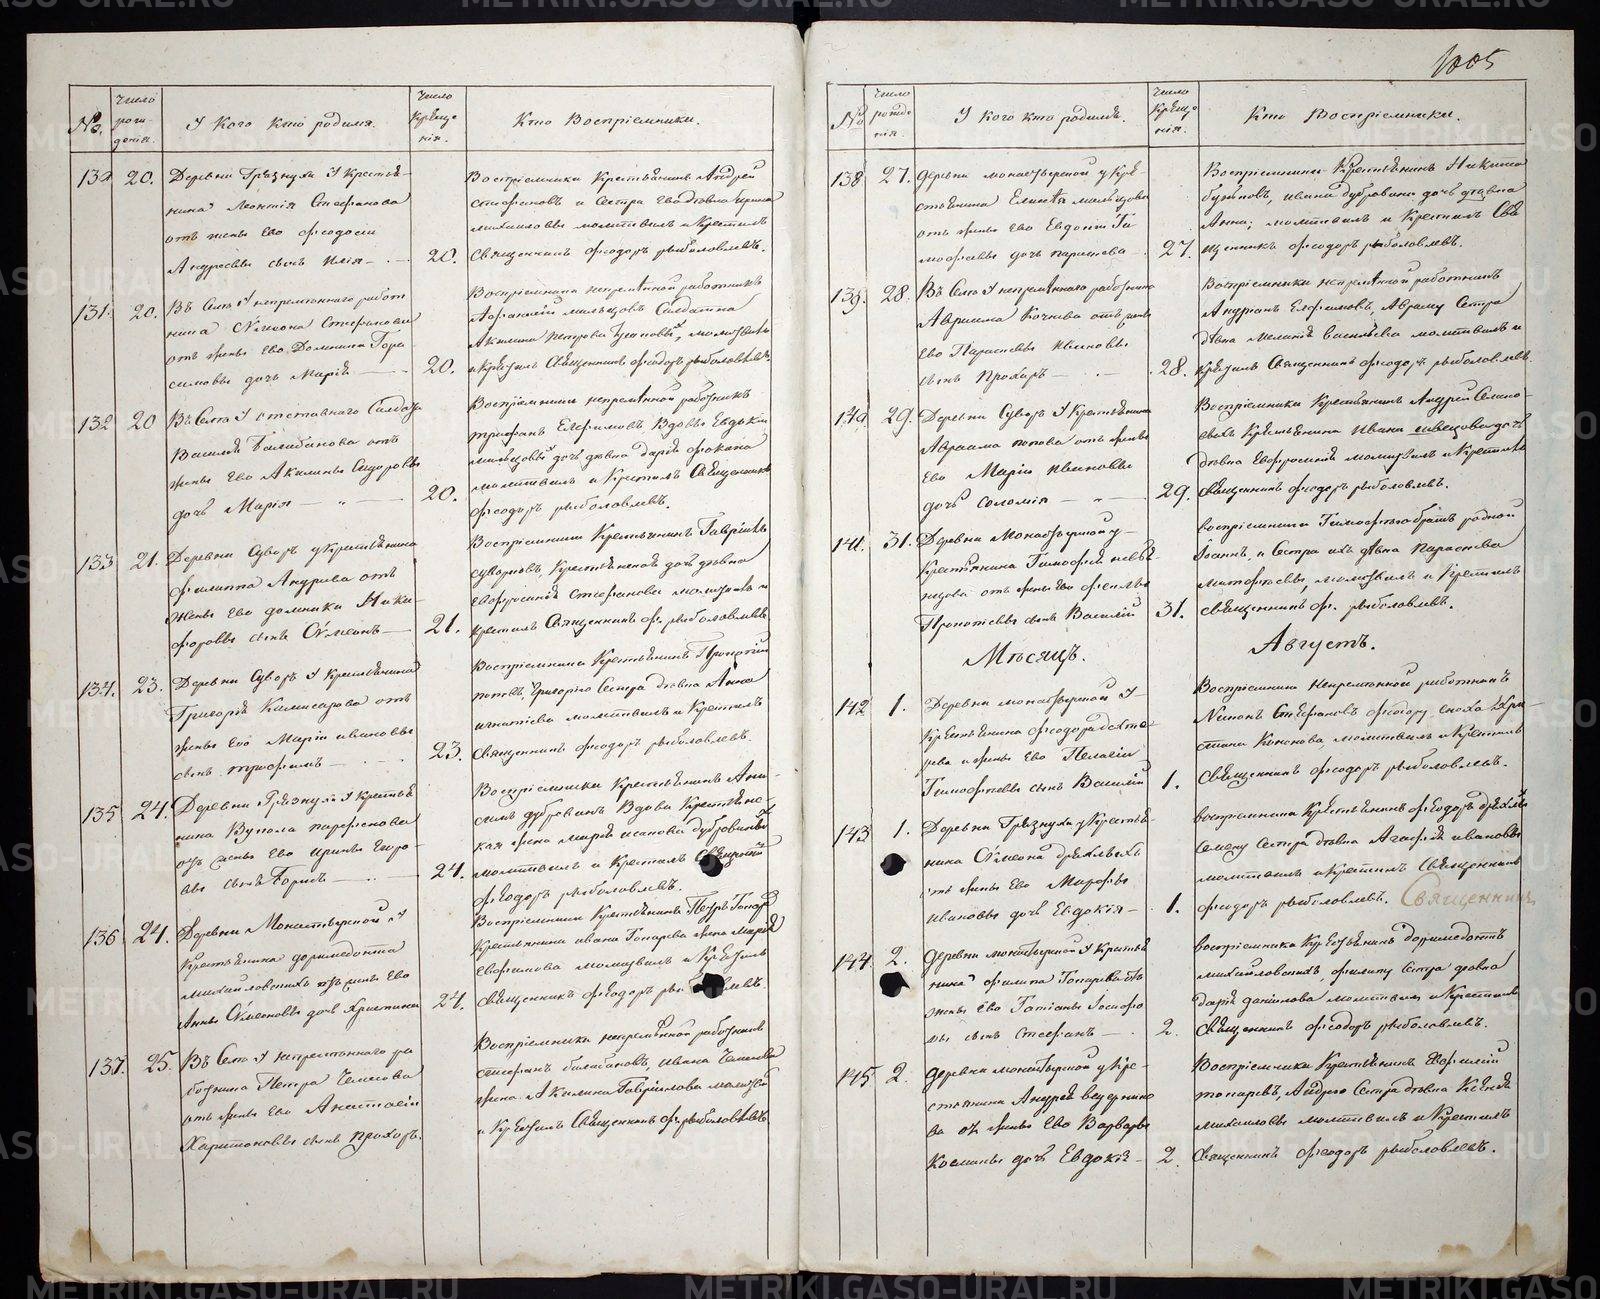 1005
№. Число рождения. У кого кто родился. Число крещения. Кто Восприемники.
130 20. Деревни Грязнухи У Крестья-
нина Леонтія Стефанова
отъ жены Ево Феодосіи
Андреевы сынъ Илія
20.
Восприемники Крестьянинъ Андрей
Стефановъ и Сестра Ево девка
михаиловы молитвилъ и Крестилъ
Священникъ Феодоръ рыболовлевъ.
131. 20. Въ Селѣ У непременнаго работ
ника Сѵмеона Стефанова
отъ жены Ево Домники Гера
симовы дочь Марія
20.
Восприемники непремѣнной работникъ
Афанасій мальцовъ Салдатка
Акилина Петрова молитвилъ
и Крестилъ Священникъ Феодоръ рыболовлевъ.
132 20 Въ Селѣ У отставнаго Салдата
Василья Балабанова отъ
жены Ево Акилины Сидоровы
дочь Марія
20.
Восприемники непремѣнной работникъ
трифанъ Елфимовъ Вдовы Евдокіи
мальцовы дочь девка Дарія
молитвилъ и Крестилъ Священникъ
Феодоръ рыболовлевъ.
133 21. Деревни Суворъ у Крестьянина
Филиппа Андреева отъ
Жены Ево домники Ники-
форовы сынъ Сѵмеонъ
21.
Восприемники Крестьянинъ Гаврилъ
Суворовъ, Крестьянской дочь девка
Евфросинія Стефанова молитвилъ и
Крестилъ Священникъ Ф. рыболовлевъ
134. 23. Деревни Суворъ У Крестьянина
Григорія Камисарова отъ
жены Ево Маріи ивановы
сынъ трофимъ
23.
Восприемники Крестьянинъ Прокопій
поповъ, Григорію Сестра девка Анна
игнатіева молитвилъ и Крестилъ
Священникъ Феодоръ рыболовлевъ.
135 24. Деревни Грязнухи У Крестья
нина Вукола парфенова
отъ жены Ево Ирины Егоро-
вы сынъ Борисъ
24.
Восприемники Крестьянинъ Ани-
симъ дубровинъ Вдова Крестьянс-
кая жена марія исакова дубровины
молитвилъ и Крестилъ Священникъ
Феодоръ рыболовлевъ.
136 24. Деревни Монастырской У
Крестьянина доримедонта
михайловскихъ отъ жены Ево
Анны Сѵмеоновы дочь Христина
24.
Восприемники Крестьянинъ Петръ Топар
Крестьянина ивана Топарева жена марія
Евфимова молитвилъ и Крестилъ
Священникъ Феодоръ рыболовлевъ
137. 25. Въ Селѣ У непременнаго ра
ботника Петра Чемесова
отъ жены Ево Анастасіи
Харитоновы сынъ Прохоръ.
Восприемники непремѣнной работникъ
Стефанъ балабановъ, ивана Чемесова
жена Акилина Гавриилова молитвилъ
и Крестилъ Священникъ Ф. рыболовлевъ
№ Число рожденія. У кого кто родился. Число Крещенія. Кто Восприемники.
138 27. деревни монастырской у Кре-
стьянина мальцова
отъ жены Ево Евдокіи Ти
мофеевы дочь параскева
27.
Восприемники Крестьянинъ Никита
ивана дубровина дочь девка
Анна; молитвилъ и Крестилъ Свя
щенникъ Феодоръ рыболовлевъ.
139. 28. Въ Селѣ У непремѣннаго работника
Авраама Кочнева отъ жены
Ево Параскевы Ивановы
сынъ Прохоръ
28.
Восприемники непремѣнной работникъ
Андріанъ Елфимовъ, Авраму Сестра
девка Меланія Васильева молитвилъ и
Крестилъ Священникъ Феодоръ рыболовлевъ
140 29. Деревни Суворъ У Крестьянина
Авраама попова отъ жены
Ево Маріи Ивановы
дочь Соломія
29.
Восприемники Крестьянинъ Андрей
Крестьянина Ивана швецова дочь
девка Евфросинія молитвилъ и Крестилъ
Священникъ Феодоръ рыболовлевъ.
141. 31. Деревни Монастырской у
Крестьянина Тимофея
отъ жены Ево
Прокопіевы сынъ Василій
31.
восприемники Тимофею братъ родной
Іоаннъ, и Сестра ихъ девка Параскева
молитвилъ и Крестилъ
Священникъ Ф. рыболовлевъ.
Мѣсяцъ. Августъ.
142 1. Деревни монастырской У
Крестьянина Феодора
рева отъ жены Ево Пелагіи
Тимофеевы сынъ Василій
1.
Восприемники Непремѣнной работникъ
Никонъ Стефановъ Феодору сноха Хри-
стина молитвилъ и Крестилъ
Священникъ Феодоръ рыболовлевъ.
143 1. Деревни Грязнухи у Крестья-
нина Сѵмеона дряхлыхъ
отъ жены Ево Марфы
ивановы дочь Евдокія
1.
восприемники Крестьянинъ Феодоръ дряхлы
Семену Сестра девка Агафія ивановы
молитвилъ и Крестилъ Священникъ
Феодоръ рыболовлевъ. Священникъ
144 2. деревни монастырской У Крестья
нина Филипа Топарева отъ
жены Ево Татіаны Іосифо
вы сынъ Стефанъ
2.
восприемники Крестьянинъ доримедонтъ
михайловскихъ, Филипу Сестра девка
дарія данилова молитвилъ и Крестилъ
Священникъ Феодоръ рыболовлевъ.
145 2. деревни монастырской у Кре-
стьянина Андрея
ва отъ жены Ево Варвары
Космины дочь Евдокія
2.
Восприемники Крестьянинъ
топаревъ, Андрею Сестра девка Ксенія
михаиловы молитвилъ и Крестилъ
Священникъ Феодоръ рыболовлевъ.
METRIKI.GASO-URAL.RU